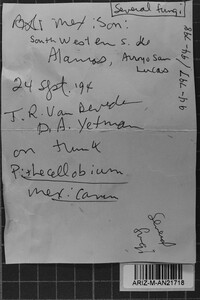 Several fungi
Mex: Son:
South West en S. de
Alamos, Arroyo San
Lucas
24 Sept. 194
T. R. Van Devender
D. A. Yetman
on trunk
Pithecellobium
mexicanum
Several
fungi
ARIZ-M-AN21718